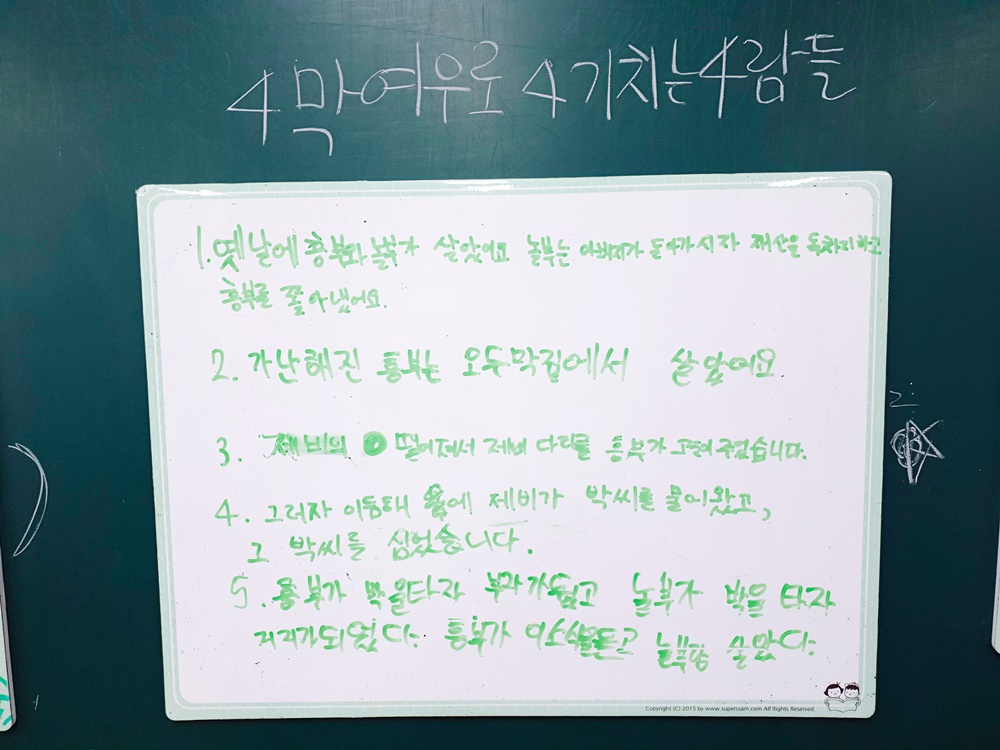 4막여우로 4기치는4람들
1. 옛날에 흥부와 놀부가 살았어요 놀부는 아버지가 돌아가시자 재산을 독차지하고
흥부를 쫓아냈어요.
2. 가난해진 흥부는 오두막집에서 살았어요
3. 제비의 떨어져서 제비 다리를 흥부가 고쳐주었습니다.
4. 그러자 이듬해 봄에 제비가 박씨를 물어왔고,
그 박씨를 심었습니다.
5. 흥부가 박을타자 부자가됬고 놀부가 박을 타자
거지가되었다. 흥부가 이소식을듣고 놀부랑 살았다.
Copyright (C) 2015 by www.superssam.com All Rights Reserved.